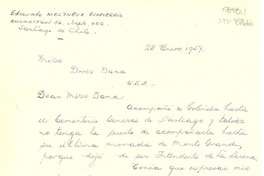 Eduardo MOLYNEUX ECHEVERRIA
Santiago de Chile.
28 Enero 1957.
Miss
Doris Dana
U.S.A.
Dear Miss Dana:
acompañé a Gabriela hasta
el Cementerio General de Santiago y
no tengo la pena de acompañarla hasta
su última morada de Monte Grande,
porque dejé de ser Intendente de La Serena.
Tenía que expresar mis